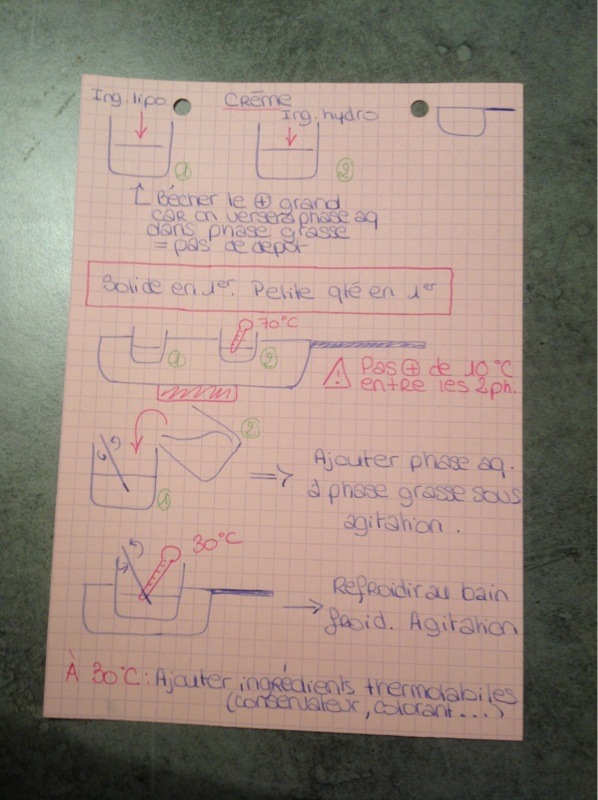 Ing. lipo
CRÈME
Ing. hydro
1
2
Bécher le + grand
car on versera phase aq
dans phase grasse
= pas de dépôt
Solide en 1er. Petite qté en 1er
70°C
1
2
Pas + de 10°C
entre les 2 ph.
2
1
=> Ajouter phase aq.
à phase grasse sous
agitation.
30°C
→ Refroidir au bain
froid. Agitation
À 30°C : Ajouter ingrédients thermolabiles
(conservateur, colorant...)